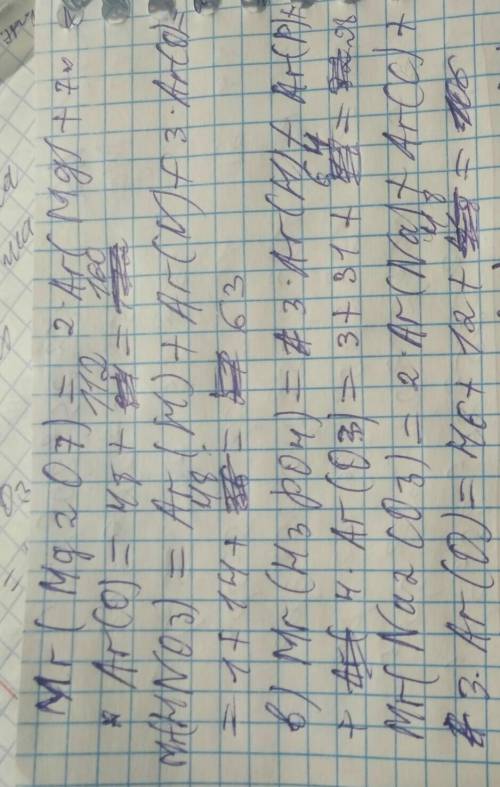 Mr(Mg2O7) = 2·Ar(Mg) + 7·
× Ar(O) = 48 + 112 = 160
Mr(HNO3) = Ar(H) + Ar(N) + 3·Ar(O) =
= 1 + 14 + 48 = 63
в) Mr(H3PO4) = 3·Ar(H) + Ar(P) +
+ 4·Ar(O3) = 3 + 31 + 64 =
Mr(Na2CO3) = 2·Ar(Na) + Ar(C) +
3·Ar(O) = 46 + 12 + 48 =